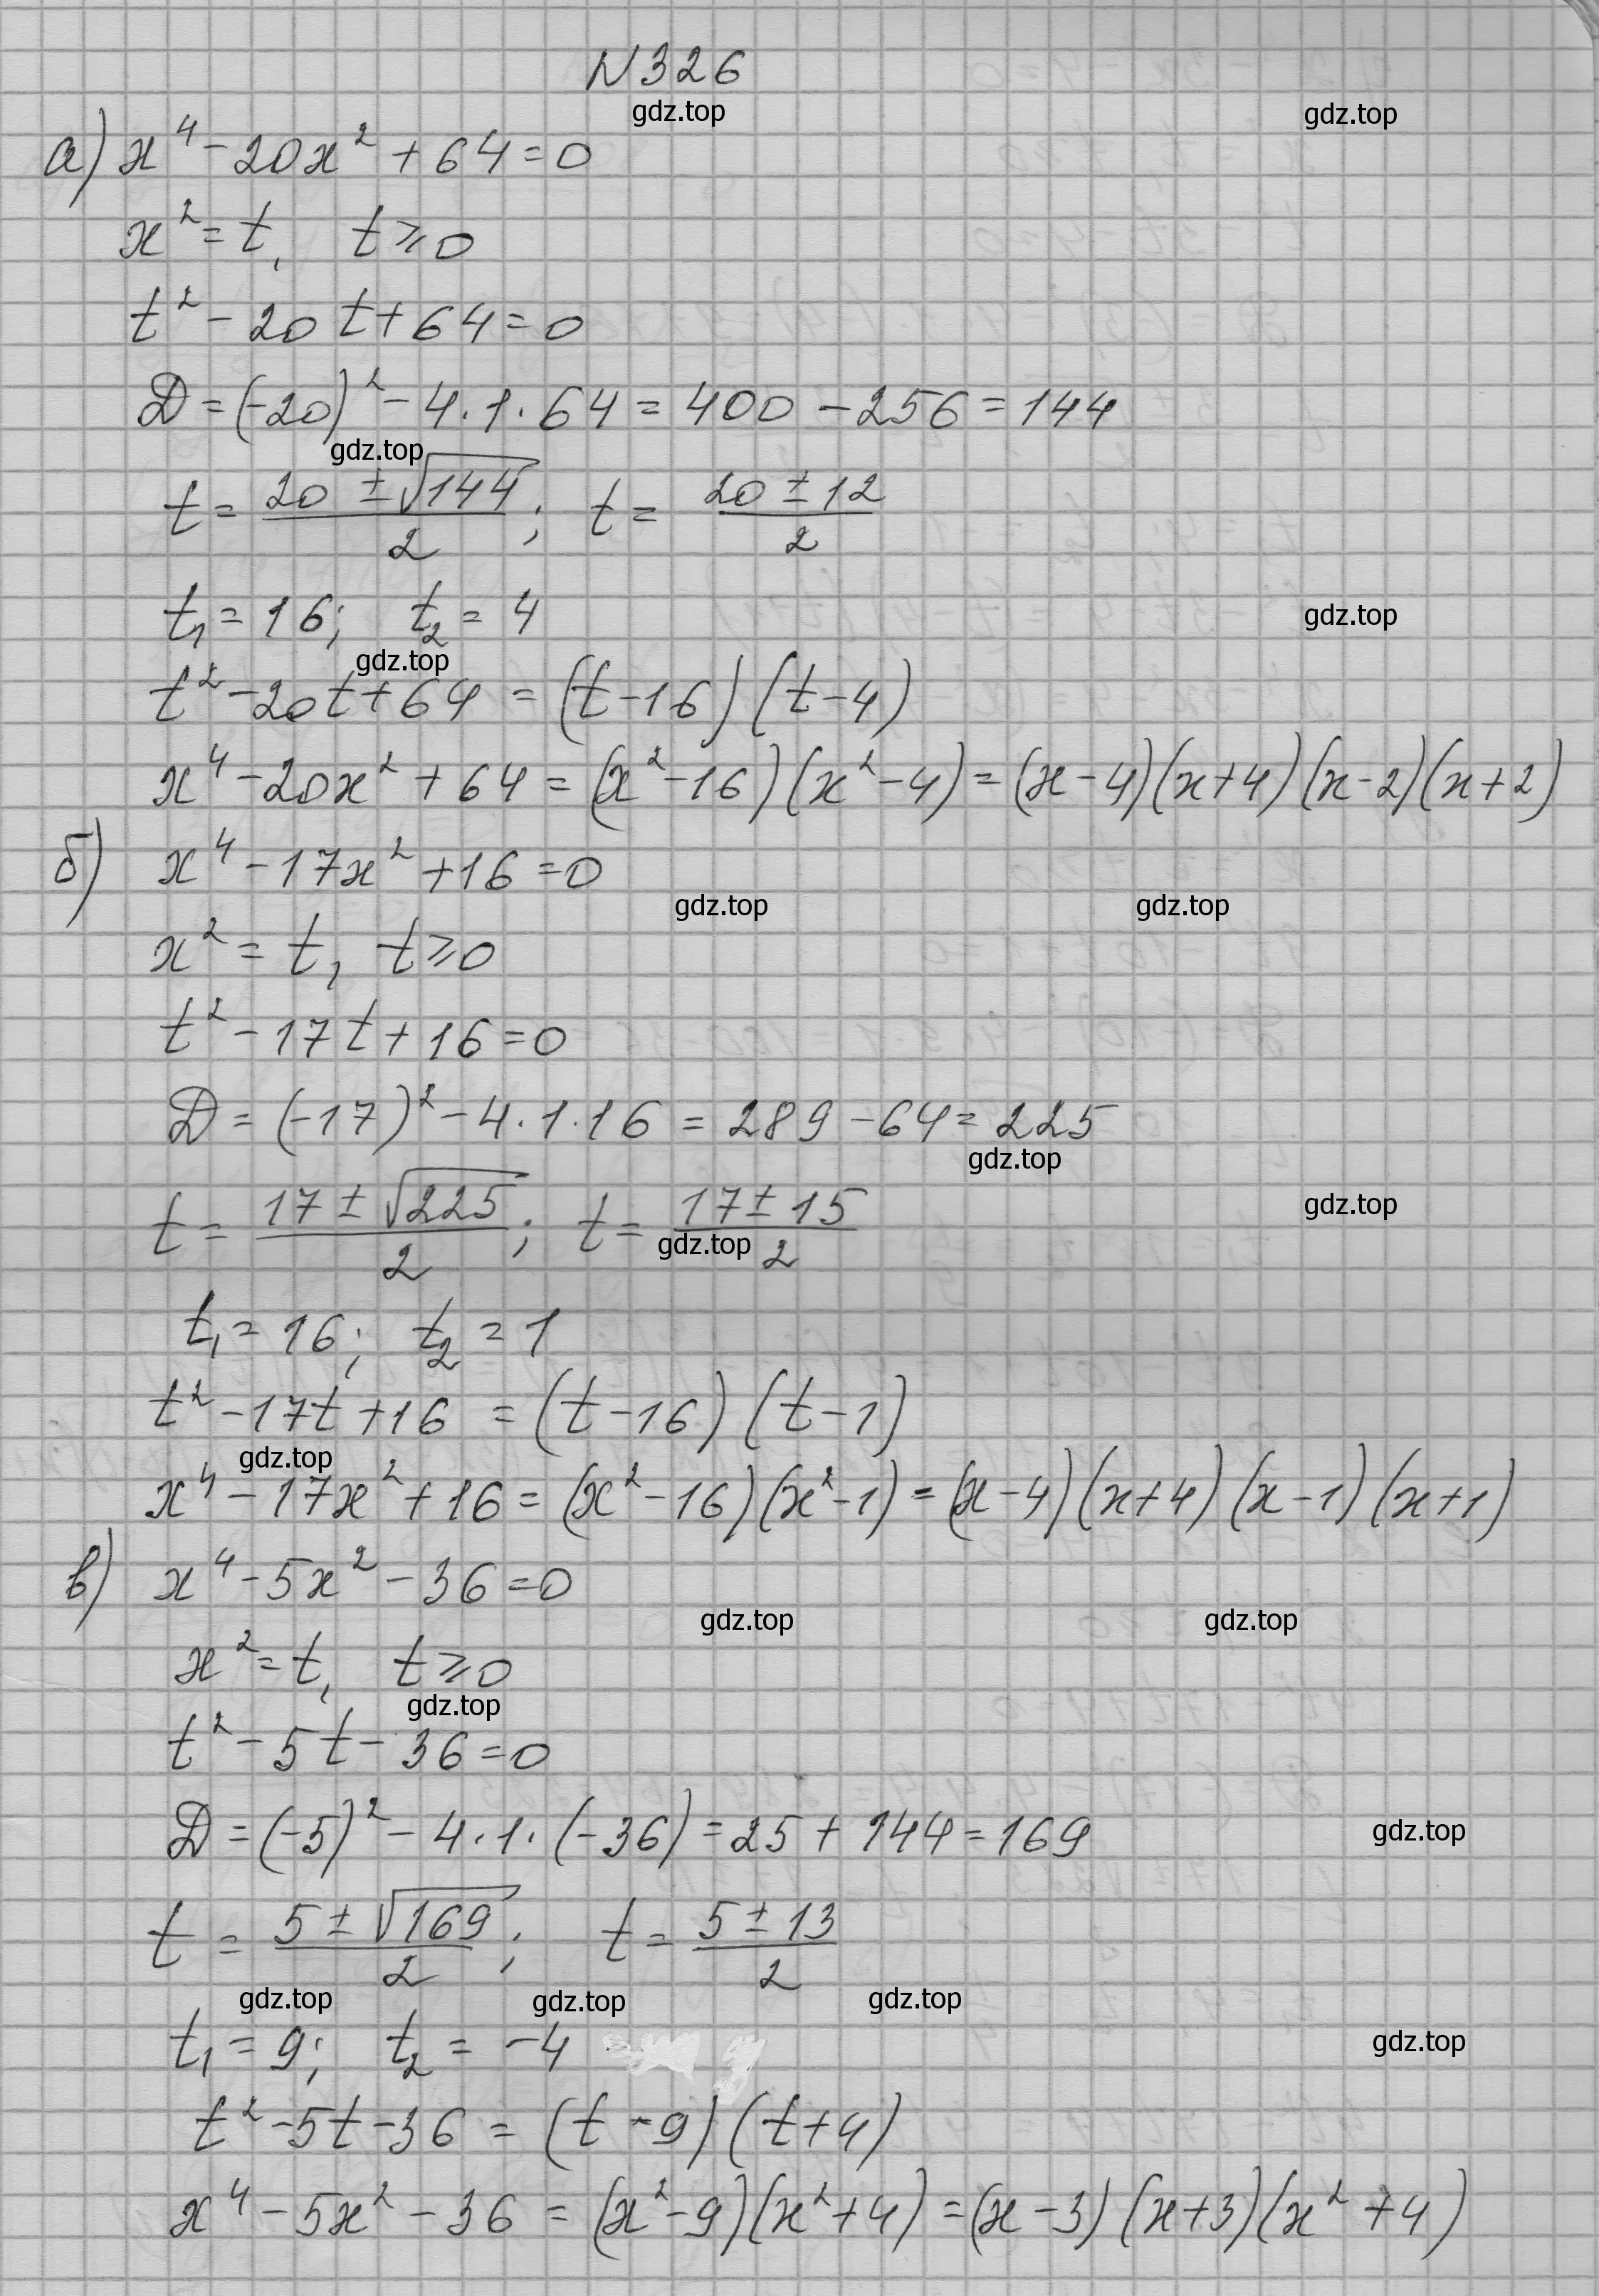 N 326
gdz.top
gdz.top
а) x⁴ - 20x² + 64 = 0
x² = t, t ⩾ 0
t² - 20t + 64 = 0
D = (-20)² - 4·1·64 = 400 - 256 = 144
gdz.top
t = (20 ± √144)/2; t = (20 ± 12)/2
t₁ = 16; t₂ = 4
gdz.top
gdz.top
t² - 20t + 64 = (t - 16)(t - 4)
x⁴ - 20x² + 64 = (x² - 16)(x² - 4) = (x - 4)(x + 4)(x - 2)(x + 2)
б) x⁴ - 17x² + 16 = 0
gdz.top
gdz.top
x² = t, t ⩾ 0
t² - 17t + 16 = 0
D = (-17)² - 4·1·16 = 289 - 64 = 225
gdz.top
gdz.top
t = (17 ± √225)/2; t = (17 ± 15)/2
gdz.top
t₁ = 16; t₂ = 1
t² - 17t + 16 = (t - 16)(t - 1)
gdz.top
x⁴ - 17x² + 16 = (x² - 16)(x² - 1) = (x - 4)(x + 4)(x - 1)(x + 1)
в) x⁴ - 5x² - 36 = 0
gdz.top
gdz.top
x² = t, t ⩾ 0
gdz.top
t² - 5t - 36 = 0
D = (-5)² - 4·1·(-36) = 25 + 144 = 169
gdz.top
t = (5 ± √169)/2; t = (5 ± 13)/2
gdz.top
gdz.top
gdz.top
t₁ = 9; t₂ = -4
gdz.top
t² - 5t - 36 = (t - 9)(t + 4)
x⁴ - 5x² - 36 = (x² - 9)(x² + 4) = (x - 3)(x + 3)(x² + 4)